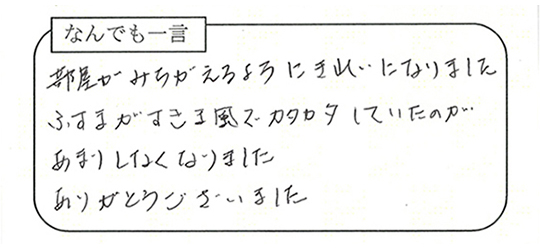 なんでも一言
部屋がみちがえるように きれいになりました
ふすまがすきま風でカタカタしていたのが
あまりしなくなりました
ありがとうございました